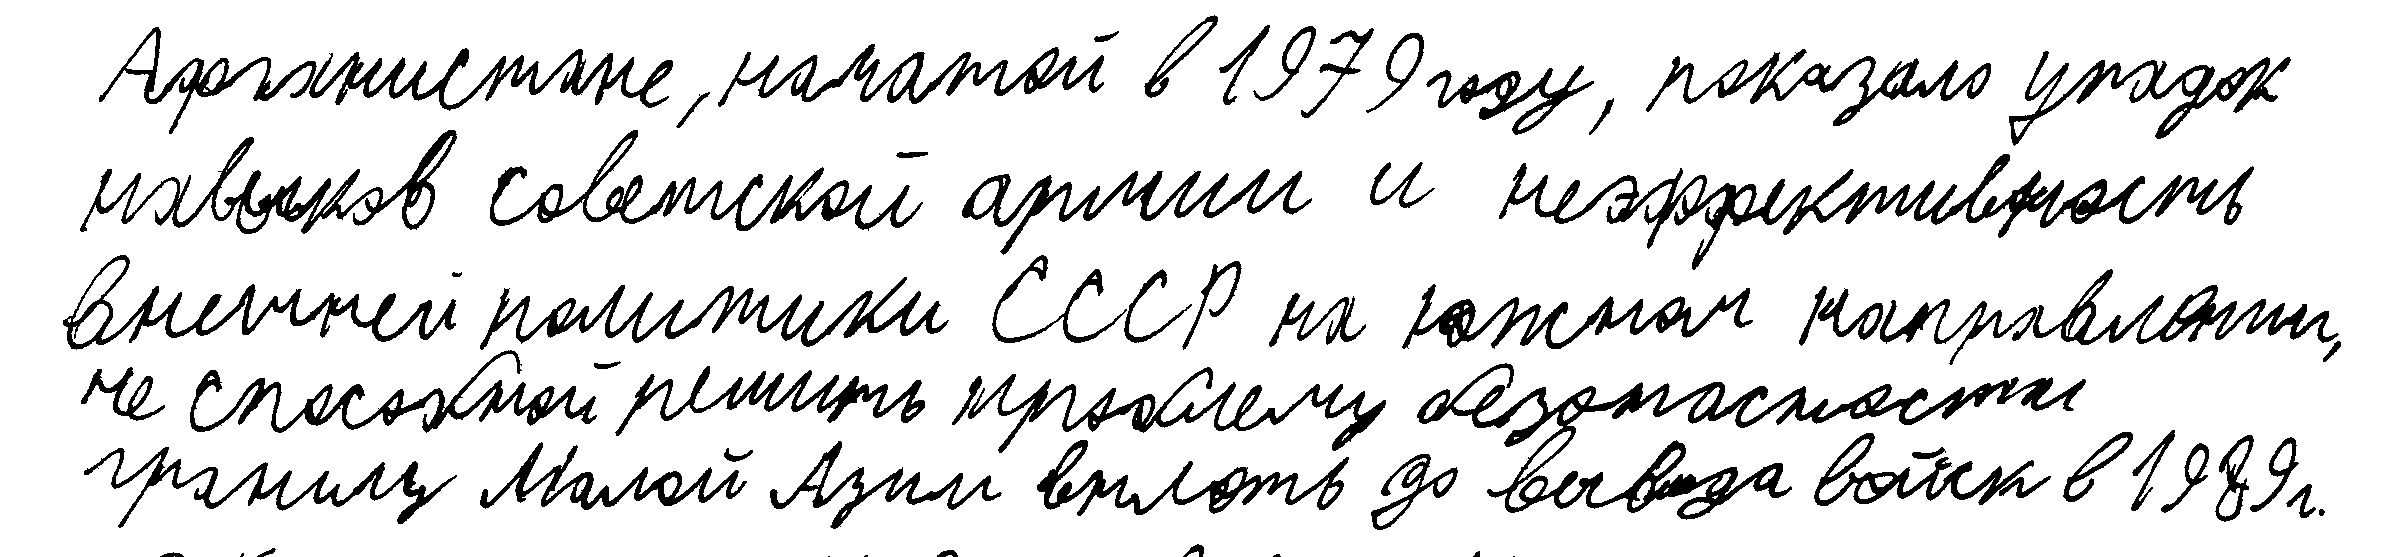 Афганистане, начатой в 1979 году, показало упадок
навыков советской армии и неэффективность
внешней политики СССР на южном направлении,
не способной решить проблему безопасности
границ Малой Азии вплоть до вывода войск в 1989 г.